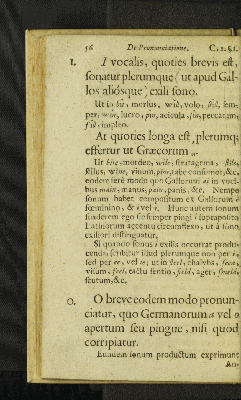 56 De Pronunciatione. C. 1. §. 1.
I. I vocalis, quoties brevis est,
sonatur plerumque (ut apud Gal-
los aliósque) exili sono.
Ut in bit, morsus, will, volo, still, sem-
per, win, lucro, pin, acicula, sin, peccatum,
fill, impleo.
At quoties longa est plerumq;
effertur ut Græcorum
Ut bite, mordeo, wile, stratagema, stile,
stilus, wine, vinum, pine, tabe consumor, &c.
eodem ferè modo quo Gallorum ai in vocî-
bus main, manus, pain, panis, &c. Nempe
sonum habet compositum ex Gallorum é
fœminino, & i vel y. Hunc autem sonum
Latinorum accentu circumflexo, ut à sono
exiliori distinguatur.
Si quando sonus i exilis occurrat produc-
endus, scribitur illud plerumque non per i,
sed per ee, vel ie; ut in steel, chalybs,
visum, feel, tactu sentio, field, ager, shield,
scutum, &c.
O. O breve eodem modo pronun-
ciatur, quo Germanorum a vel o
apertum seu pingue, nisi quod
corripiatur.
Eundem sonum productum exprimunt
An-